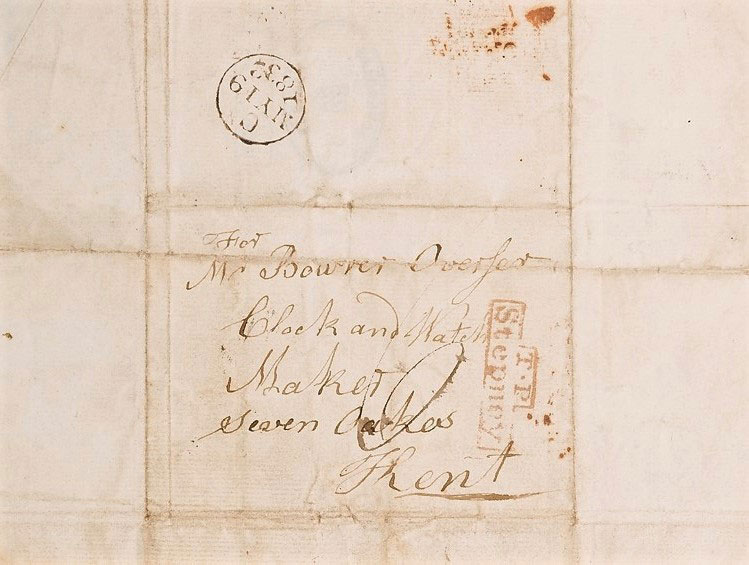 C
MY 19
1832
For
Mr Bowrer Overser
Clock and Watch
Maker
Seven Oakes
Kent
T.P
Stepney